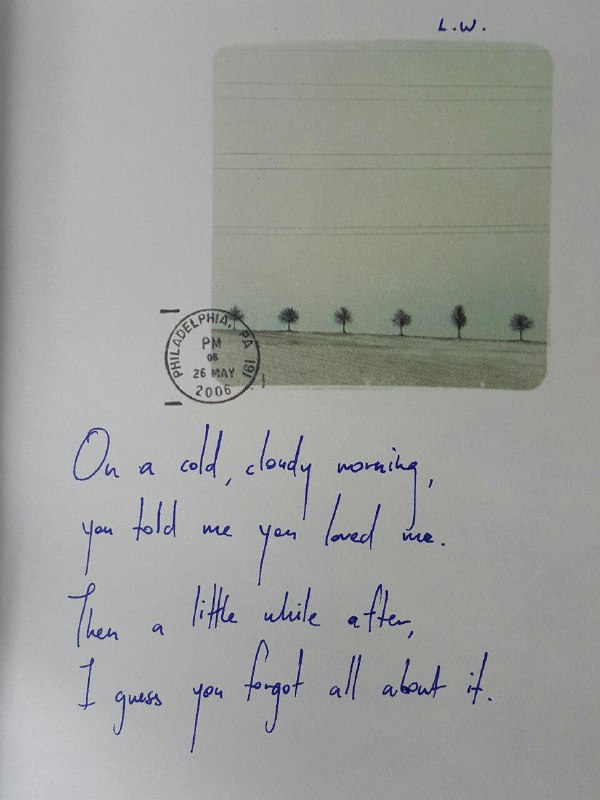 L.W.
PHILADELPHIA, PA 191
PM
06
26 MAY
2006
On a cold, cloudy morning,
you told me you loved me.
Then a little while after,
I guess you forgot all about it.